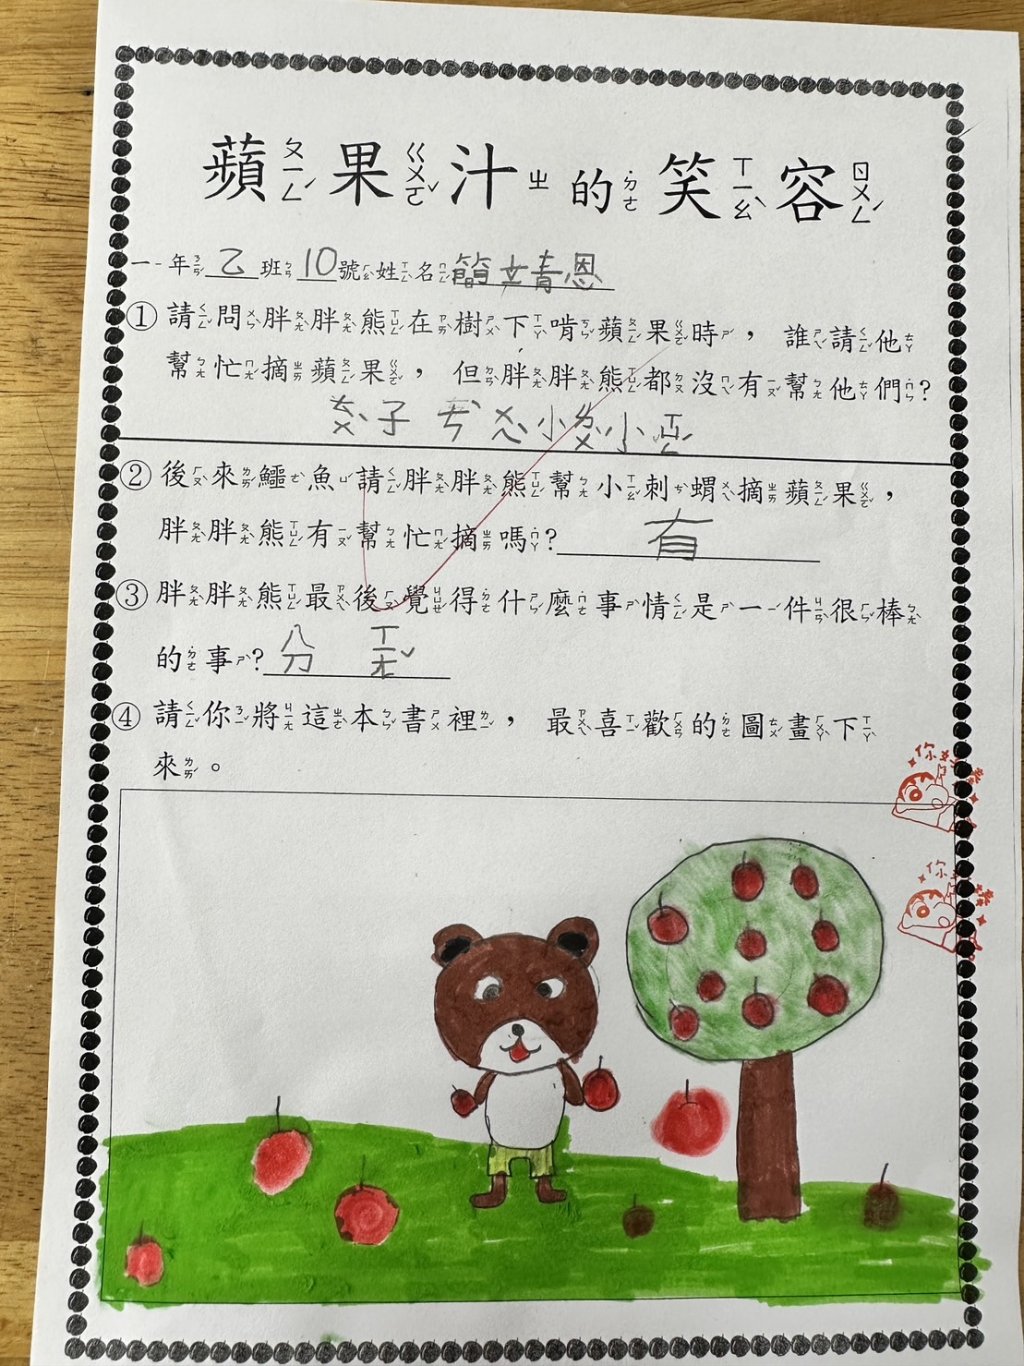 蘋ㄆㄧㄥˊ果ㄍㄨㄛˇ汁ㄓ的˙ㄉㄜ笑ㄒㄧㄠˋ容ㄖㄨㄥˊ
一年乙班10號姓名簡立青恩
①請問胖胖熊在樹下啃蘋果時，誰請他
幫忙摘蘋果，但胖胖熊都沒有幫他們？
ㄊㄨˋ子 ㄘˋㄨㄟˋ小ㄌㄨˋ小ㄒㄩㄥˊ
②後來鱷魚請胖胖熊幫小刺蝟摘蘋果，
胖胖熊有幫忙摘嗎？有
③胖胖熊最後覺得什麼事情是一件很棒
的事？分 ㄒㄧㄤˇ
④請你將這本書裡，最喜歡的圖畫下
來。
你好棒
你好棒